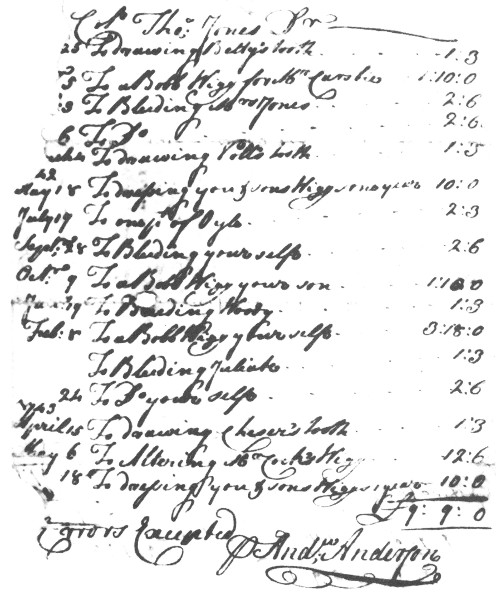 Colo. Thos. Jones Dr
25 To drawing Bettys tooth 1:3
5 To a Bobb Wigg for Mr. Carslie 1:10:0
To Bleeding Mrs Jones 2:6
6 To Do 2:6
To drawing tooth 1:3
42
May 18 To dressing you & sons Wiggs one year 10:0
July 19 To one pt. of Oyle 2:3
Sept. 28 To Bleeding your self 2:6
Octr. 9 To a Bobb Wigg your son 1:10:0
19 To Bleeding Moody 1:3
Feb: 8 To a Bobb Wigg your self 3:18:0
To Bleeding Juliata 1:3
24 To Do your self 2:6
1743
April 15 To drawing Chesers tooth 1:3
May 6 To Altering Mr Cocks Wigg 12:6
18 To dressing you & sons Wiggs 1 year 10:0
£9:9:0
Errors Excepted
P Andw Anderson